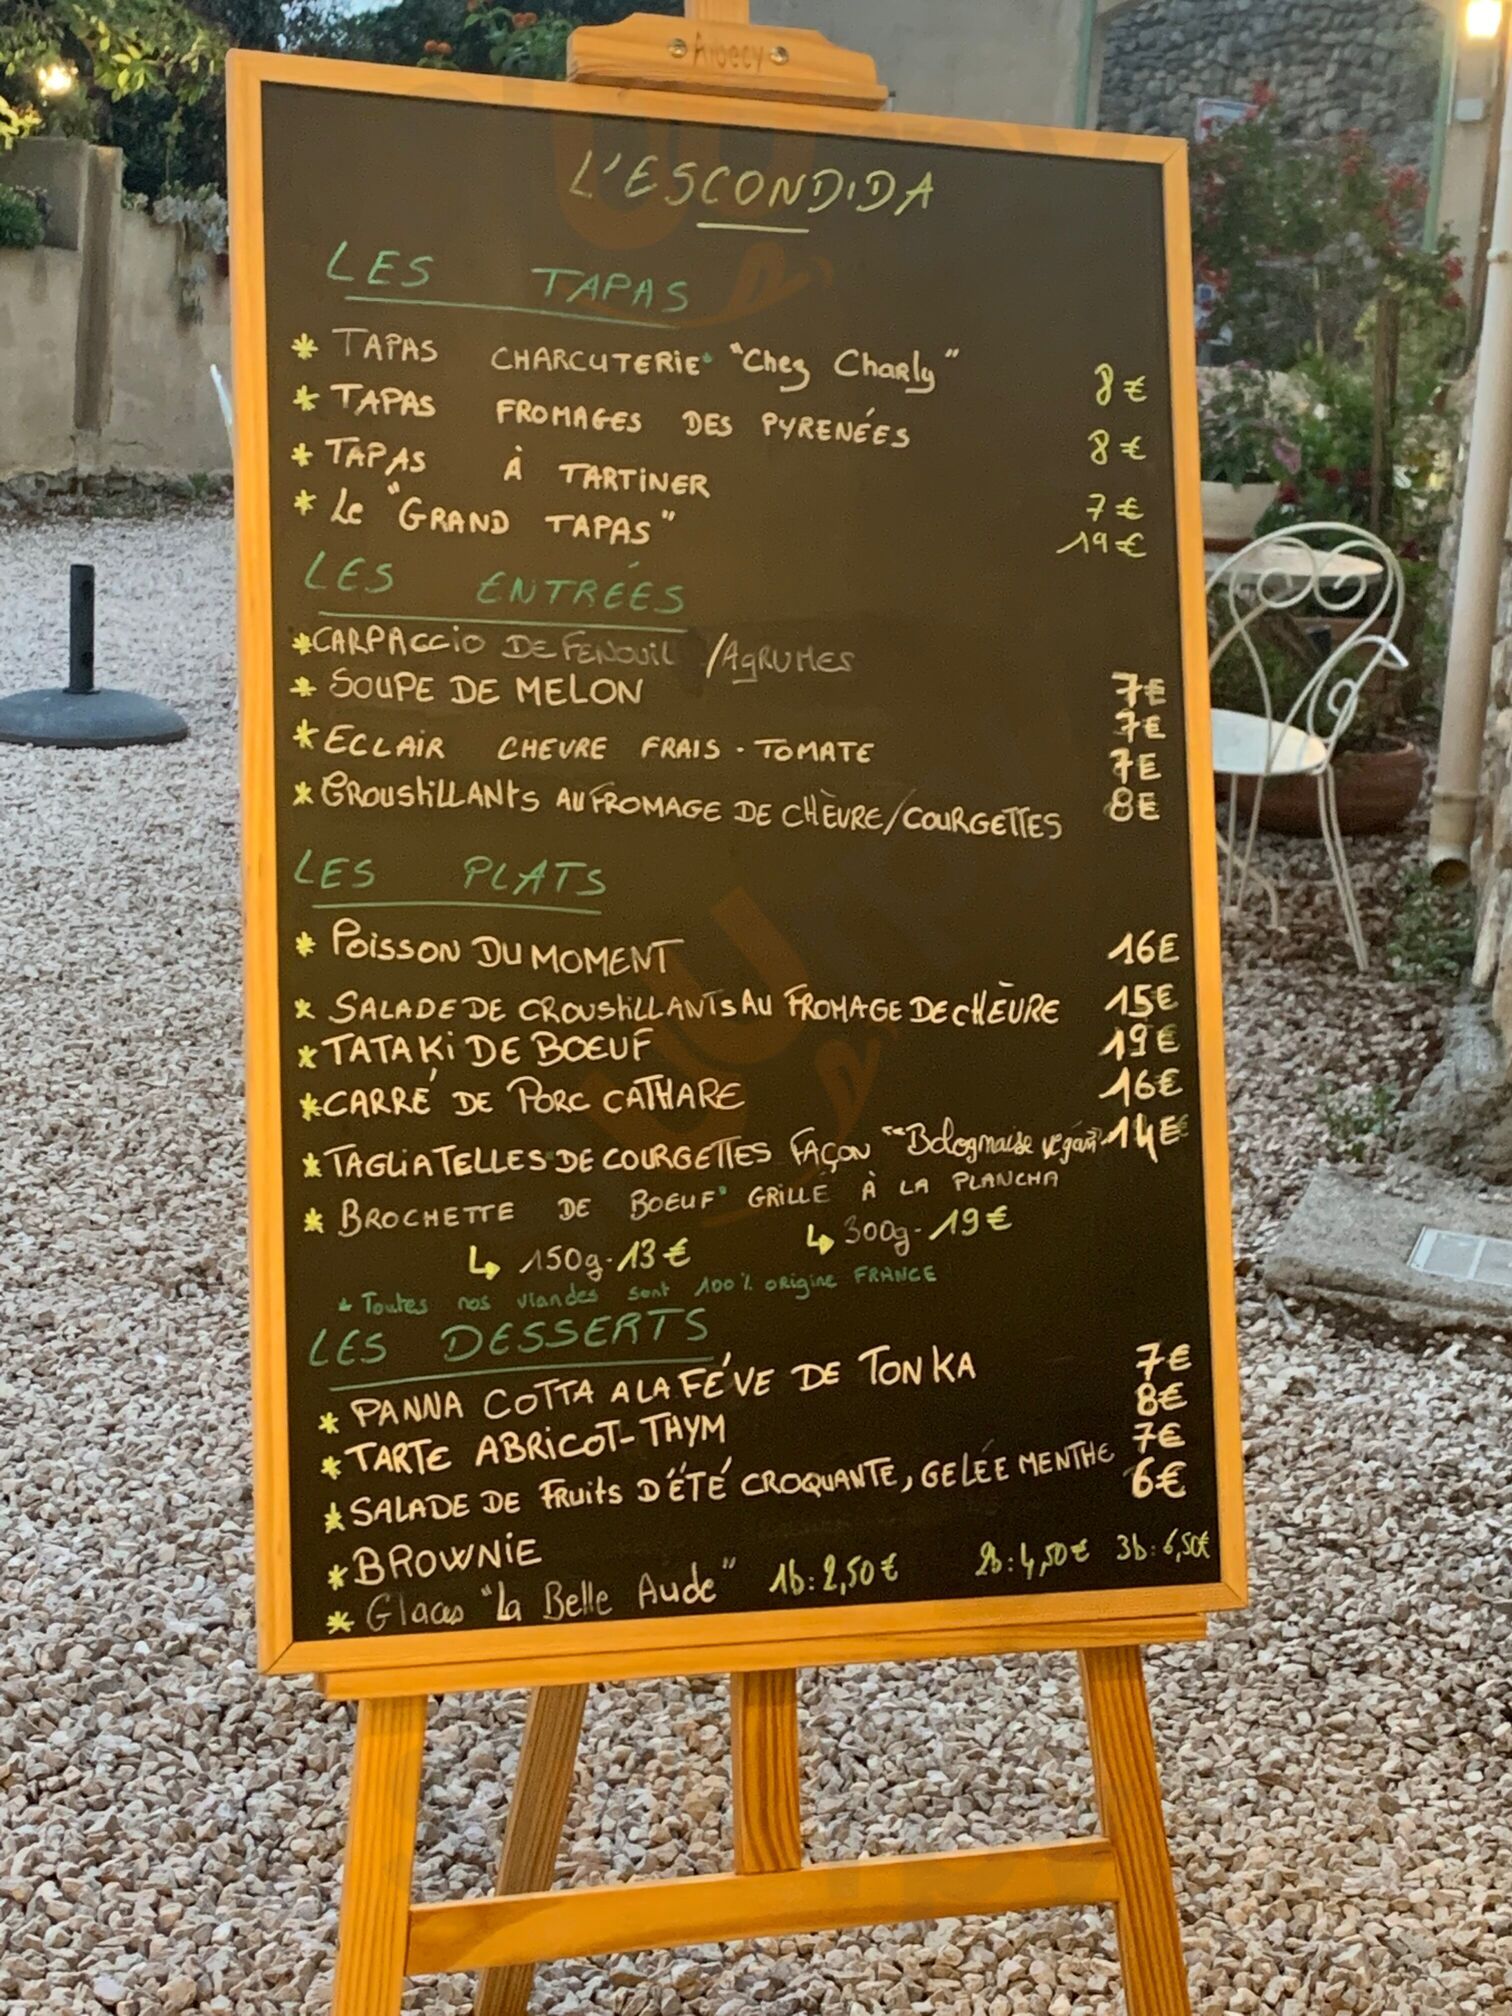 Albecy
L'ESCONDIDA
LES TAPAS
* TAPAS CHARCUTERIE* "Chez Charly" 8€
* TAPAS FROMAGES DES PYRENÉES 8€
* TAPAS À TARTINER 7€
* Le "GRAND TAPAS" 19€
LES ENTRÉES
* CARPACCIO DE FENOUIL / AGRUMES 7€
* SOUPE DE MELON 7€
* ECLAIR CHEVRE FRAIS - TOMATE 7€
* CROUSTILLANTS AU FROMAGE DE CHÈVRE/COURGETTES 8€
LES PLATS
* POISSON DU MOMENT 16€
* SALADE DE CROUSTILLANTS AU FROMAGE DE CHÈVRE 15€
* TATAKI DE BOEUF 19€
* CARRÉ DE PORC CATHARE 16€
* TAGLIATELLES DE COURGETTES FAÇON "Bolognaise vegan" 14€
* BROCHETTE DE BOEUF* GRILLÉ À LA PLANCHA
↳ 150g - 13€ ↳ 300g - 19€
* Toutes nos viandes sont 100% origine FRANCE
LES DESSERTS
* PANNA COTTA A LA FÉVE DE TONKA 7€
* TARTE ABRICOT-THYM 8€
* SALADE DE FRUITS D'ÉTÉ CROQUANTE, GELÉE MENTHE 7€
* BROWNIE 6€
* Glaces "La Belle Aude" 1b: 2,50€ 2b: 4,50€ 3b: 6,50€